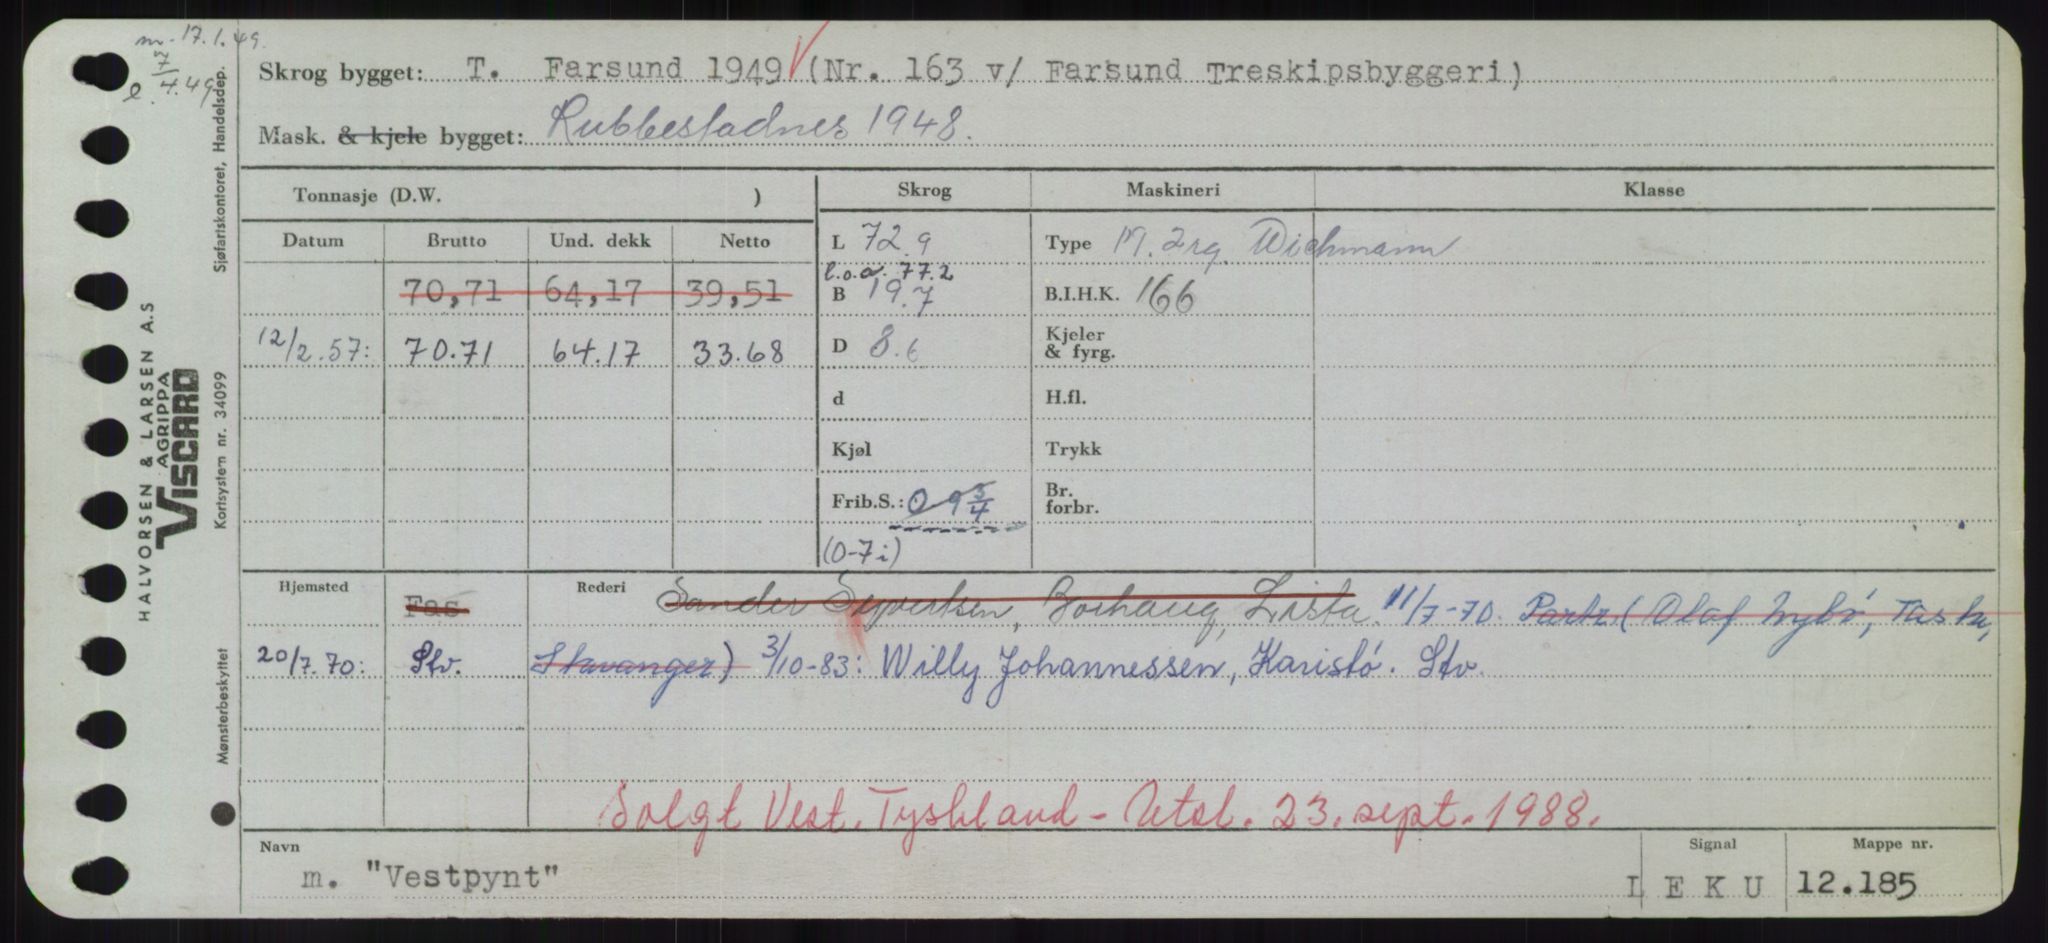 m. 17.1.49.
7
e. 4.49
Skrog bygget: T. Farsund 1949 (Nr. 163 v/ Farsund Treskipsbyggeri)
Mask. & kjele bygget: Rubbestadnes 1948.
Tonnasje (D.W. )
Skrog
Maskineri
Klasse
Datum
Brutto
Und. dekk
Netto
70,71 64,17 39,51
12/2.57: 70.71 64.17 33.68
L 72.9
l.o.a. 77.2
B 19.7
D 8.6
d
Kjøl
Frib.S.: 0 9 3/4
(0-7i)
Type M. 2rg. Wichmann
B.I.H.K. 166
Kjeler
& fyrg.
H.fl.
Trykk
Br.
forbr.
Hjemsted Fas
Rederi Sander Syvertsen, Borhaug, Lista. 11/7-70. Partr. (Olaf Nybø, Tasta,
20/7.70: Stv. Stavanger) 3/10-83: Willy Johannessen, Karistø. Stv.
Solgt Vest. Tyskland - Utsl. 23. sept. 1988.
Navn
m. "Vestpynt"
Signal
L E K U
Mappe nr.
12.185
HALVORSEN & LARSEN A.S
AGRIPPA
VISCARD
Sjøfartskontoret, Handelsdep.
Kortsystem nr. 34099
Mønsterbeskyttet